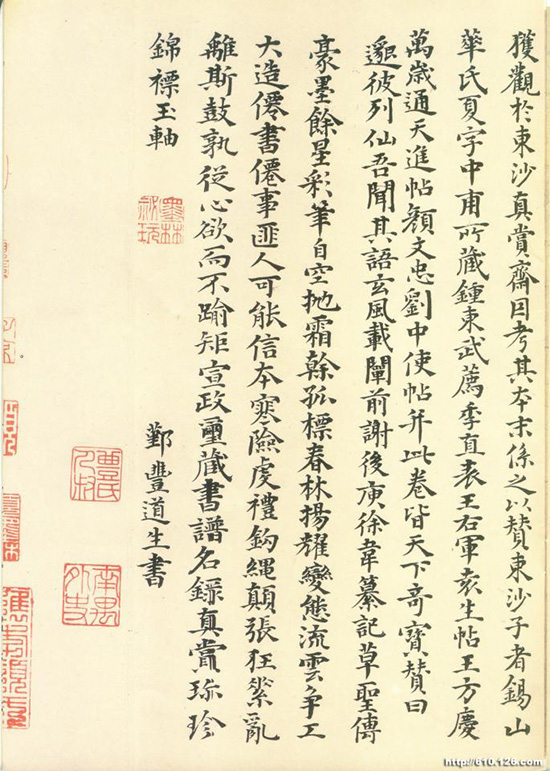 獲觀於東沙真賞齋因考其本末係之以贊東沙子者錫山
華氏夏字中甫所藏鍾東武薦季直表王右軍袁生帖王方慶
萬歲通天進帖顏文忠劉中使帖并此卷皆天下奇寶贊曰
邈彼列仙吾聞其語玄風載闡前謝後庾徐韋纂記草聖傳
豪墨餘星彩筆自空拋霜榦孤標春林揚耀變態流雲爭工
大造僊書僊事匪人可能信本寒險虔禮鈎繩顛張狂縈亂
離斯鼓孰從心欲而不踰矩宣政璽藏書譜名鏢真賞珎珍
錦褾玉軸
墨林祕玩
鄞豐道生書
豐氏人叔
南禺外史
http://610.126.com